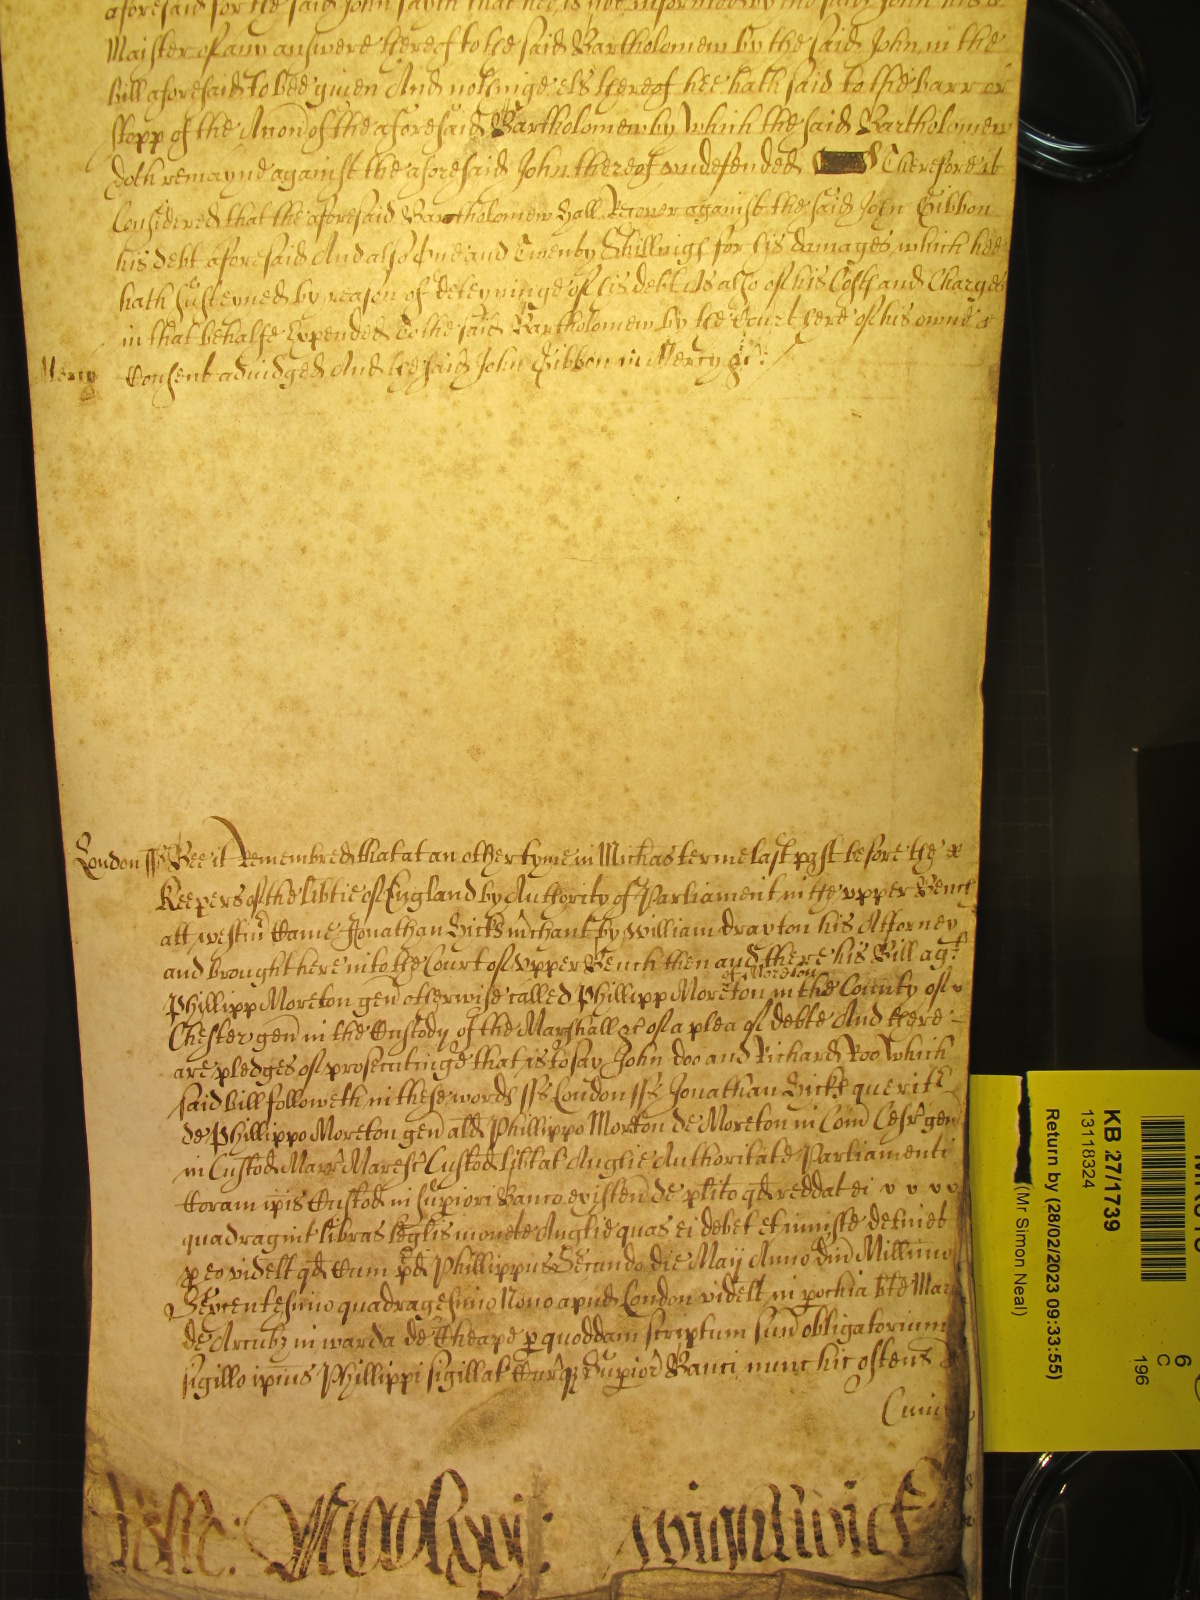 aforesaid for the said John saith that hee is not informed by the said John his
Maister of any answere thereof to the said Bartholomew by the said John in the
bill aforesaid to bee given And nothinge els thereof hee hath said to the barr or
stopp of the Accon of the aforesaid Bartholomew by which the said Bartholomew
doth remayne against the aforesaid John thereof undefended Therefore it
Considered that the aforesaid Bartholomew Hall Recover against the said John Gibbon
his debt aforesaid And also One and Twenty Shillings for his damages which hee
hath susteyned by reason of deteyninge of his debt As also of his Costs and Charges
in that behalfe Expended to the said Bartholomew by the Court here of his owne
Mercy Consent adiudged And the said John Gibbon in Mercy &c:
London ss Bee it Remembred that at an other tyme in Michas terme last past before the
Keepers of the libtie of England by Authority of Parliament in the upper Bench
att westm Came Jonathan Hicks mchant by William drayton his Attorney
and brought here into the Court of Upper Bench then and there his Bill agt
of Moreton
Phillipp Moreton gen otherwise called Phillipp Moreton in the County of
Chester gen in the Custody of the Marshall &c of a plea of debte And there
are pledges of prosecutinge that is to say John doo and Richard Roo which
said bill followeth in these words ss London ss Jonathan Hicks querit
de Phillippo Moreton gen als Phillippo Morton de Moreton in Com Cestr gen
in Custod Marr Maresc Custod libtat Anglie Authoritate Parliamenti
Coram ipis Custod in supiori Banco existen de plito qd reddat ei
quadragint libras leglis monete Anglie quas ei debet et iniuste detinet
p eo videlt qd Cum pd Phillippus Secundo die Maij Anno dni Millimo
Sexcentesimo quadragesimo Nono apud London videlt in pochia bte Marie
de Arcubz in warda de Cheape p quoddam scriptum suu obligatorium
sigillo ipius Phillippi sigillat Curq Supior Banci nunc hic ostens
Cuius
Wightwick
KB 27/1739
13118324
Return by (28/02/2023 09:33:55)
(Mr Simon Neal)
6
C
196